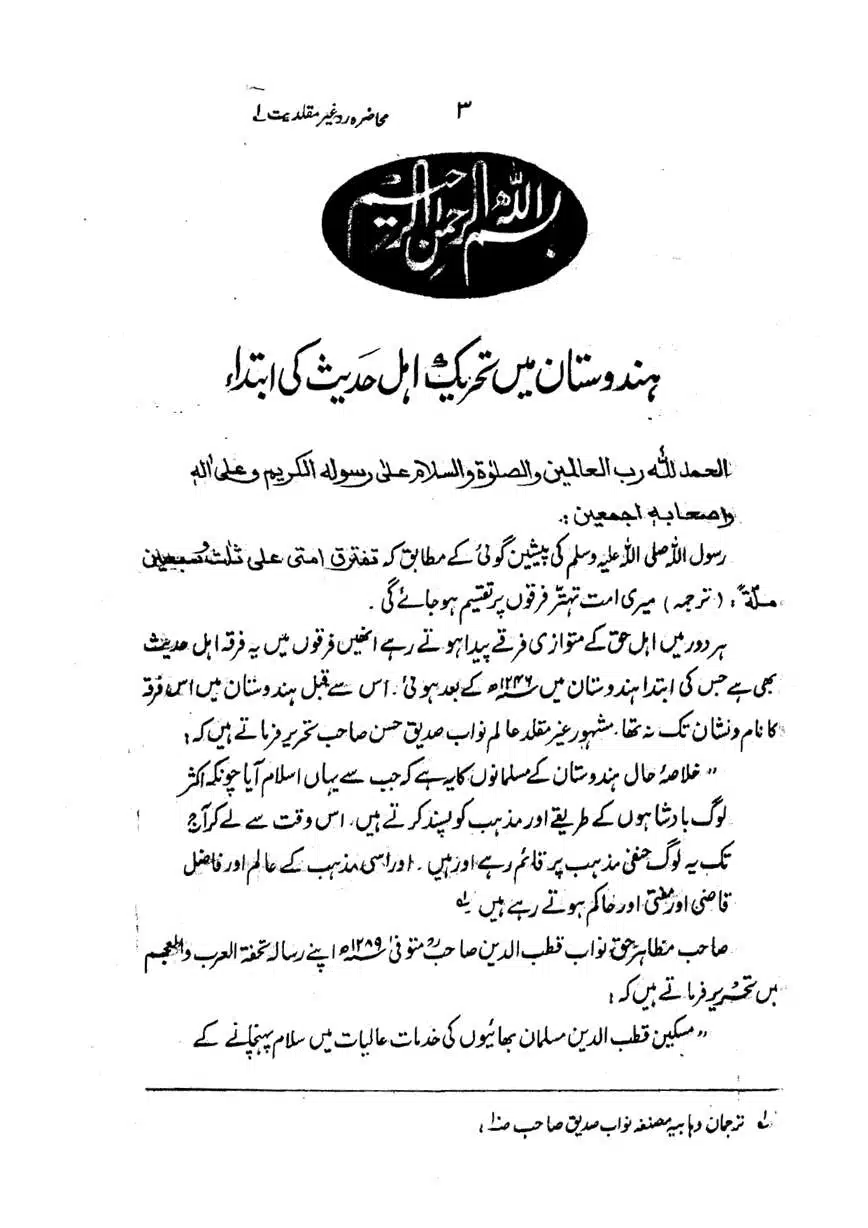 محاضرہ رد غیر مقلدیت ۱
۳
بسم اللہ الرحمن الرحیم
ہندوستان میں تحریک اہل حدیث کی ابتداء
الحمد للہ رب العالمین والصلوٰۃ والسلام علی رسولہ الکریم وعلیٰ اٰلہ
واصحابہ اجمعین :۔
رسول اللہ صلی اللہ علیہ وسلم کی پیشین گوئی کے مطابق کہ تفترق امتی علی ثلٰث وسبعین
ملۃً : (ترجمہ) میری امت تہتر فرقوں پر تقسیم ہو جائے گی ۔
ہر دور میں اہل حق کے متوازی فرقے پیدا ہوتے رہے انھیں فرقوں میں یہ فرقہ اہل حدیث
بھی ہے جس کی ابتدا ہندوستان میں ۱۲۴۶ھ کے بعد ہوئی ۔ اس سے قبل ہندوستان میں اس فرقہ
کا نام و نشان تک نہ تھا ۔ مشہور غیر مقلد عالم نواب صدیق حسن صاحب تحریر فرماتے ہیں کہ :
” خلاصۂ حال ہندوستان کے مسلمانوں کا یہ ہے کہ جب سے یہاں اسلام آیا چونکہ اکثر
لوگ بادشاہوں کے طریقے اور مذہب کو پسند کرتے ہیں ۔ اس وقت سے لے کر آج
تک یہ لوگ حنفی مذہب پر قائم رہے اور ہیں ۔ اور اسی مذہب کے عالم اور فاضل
قاضی اور مفتی اور حاکم ہوتے رہے ہیں ۱ھ
صاحب مظاہر حق نواب قطب الدین صاحبؒ متوفیٰ ۱۲۸۹ھ اپنے رسالہ تحفۃ العرب والعجم
میں تحریر فرماتے ہیں کہ :
” مسکین قطب الدین مسلمان بھائیوں کی خدمات عالیات میں سلام پہنچانے کے
۱ھ ترجمان وہابیہ مصنفہ نواب صدیق صاحب